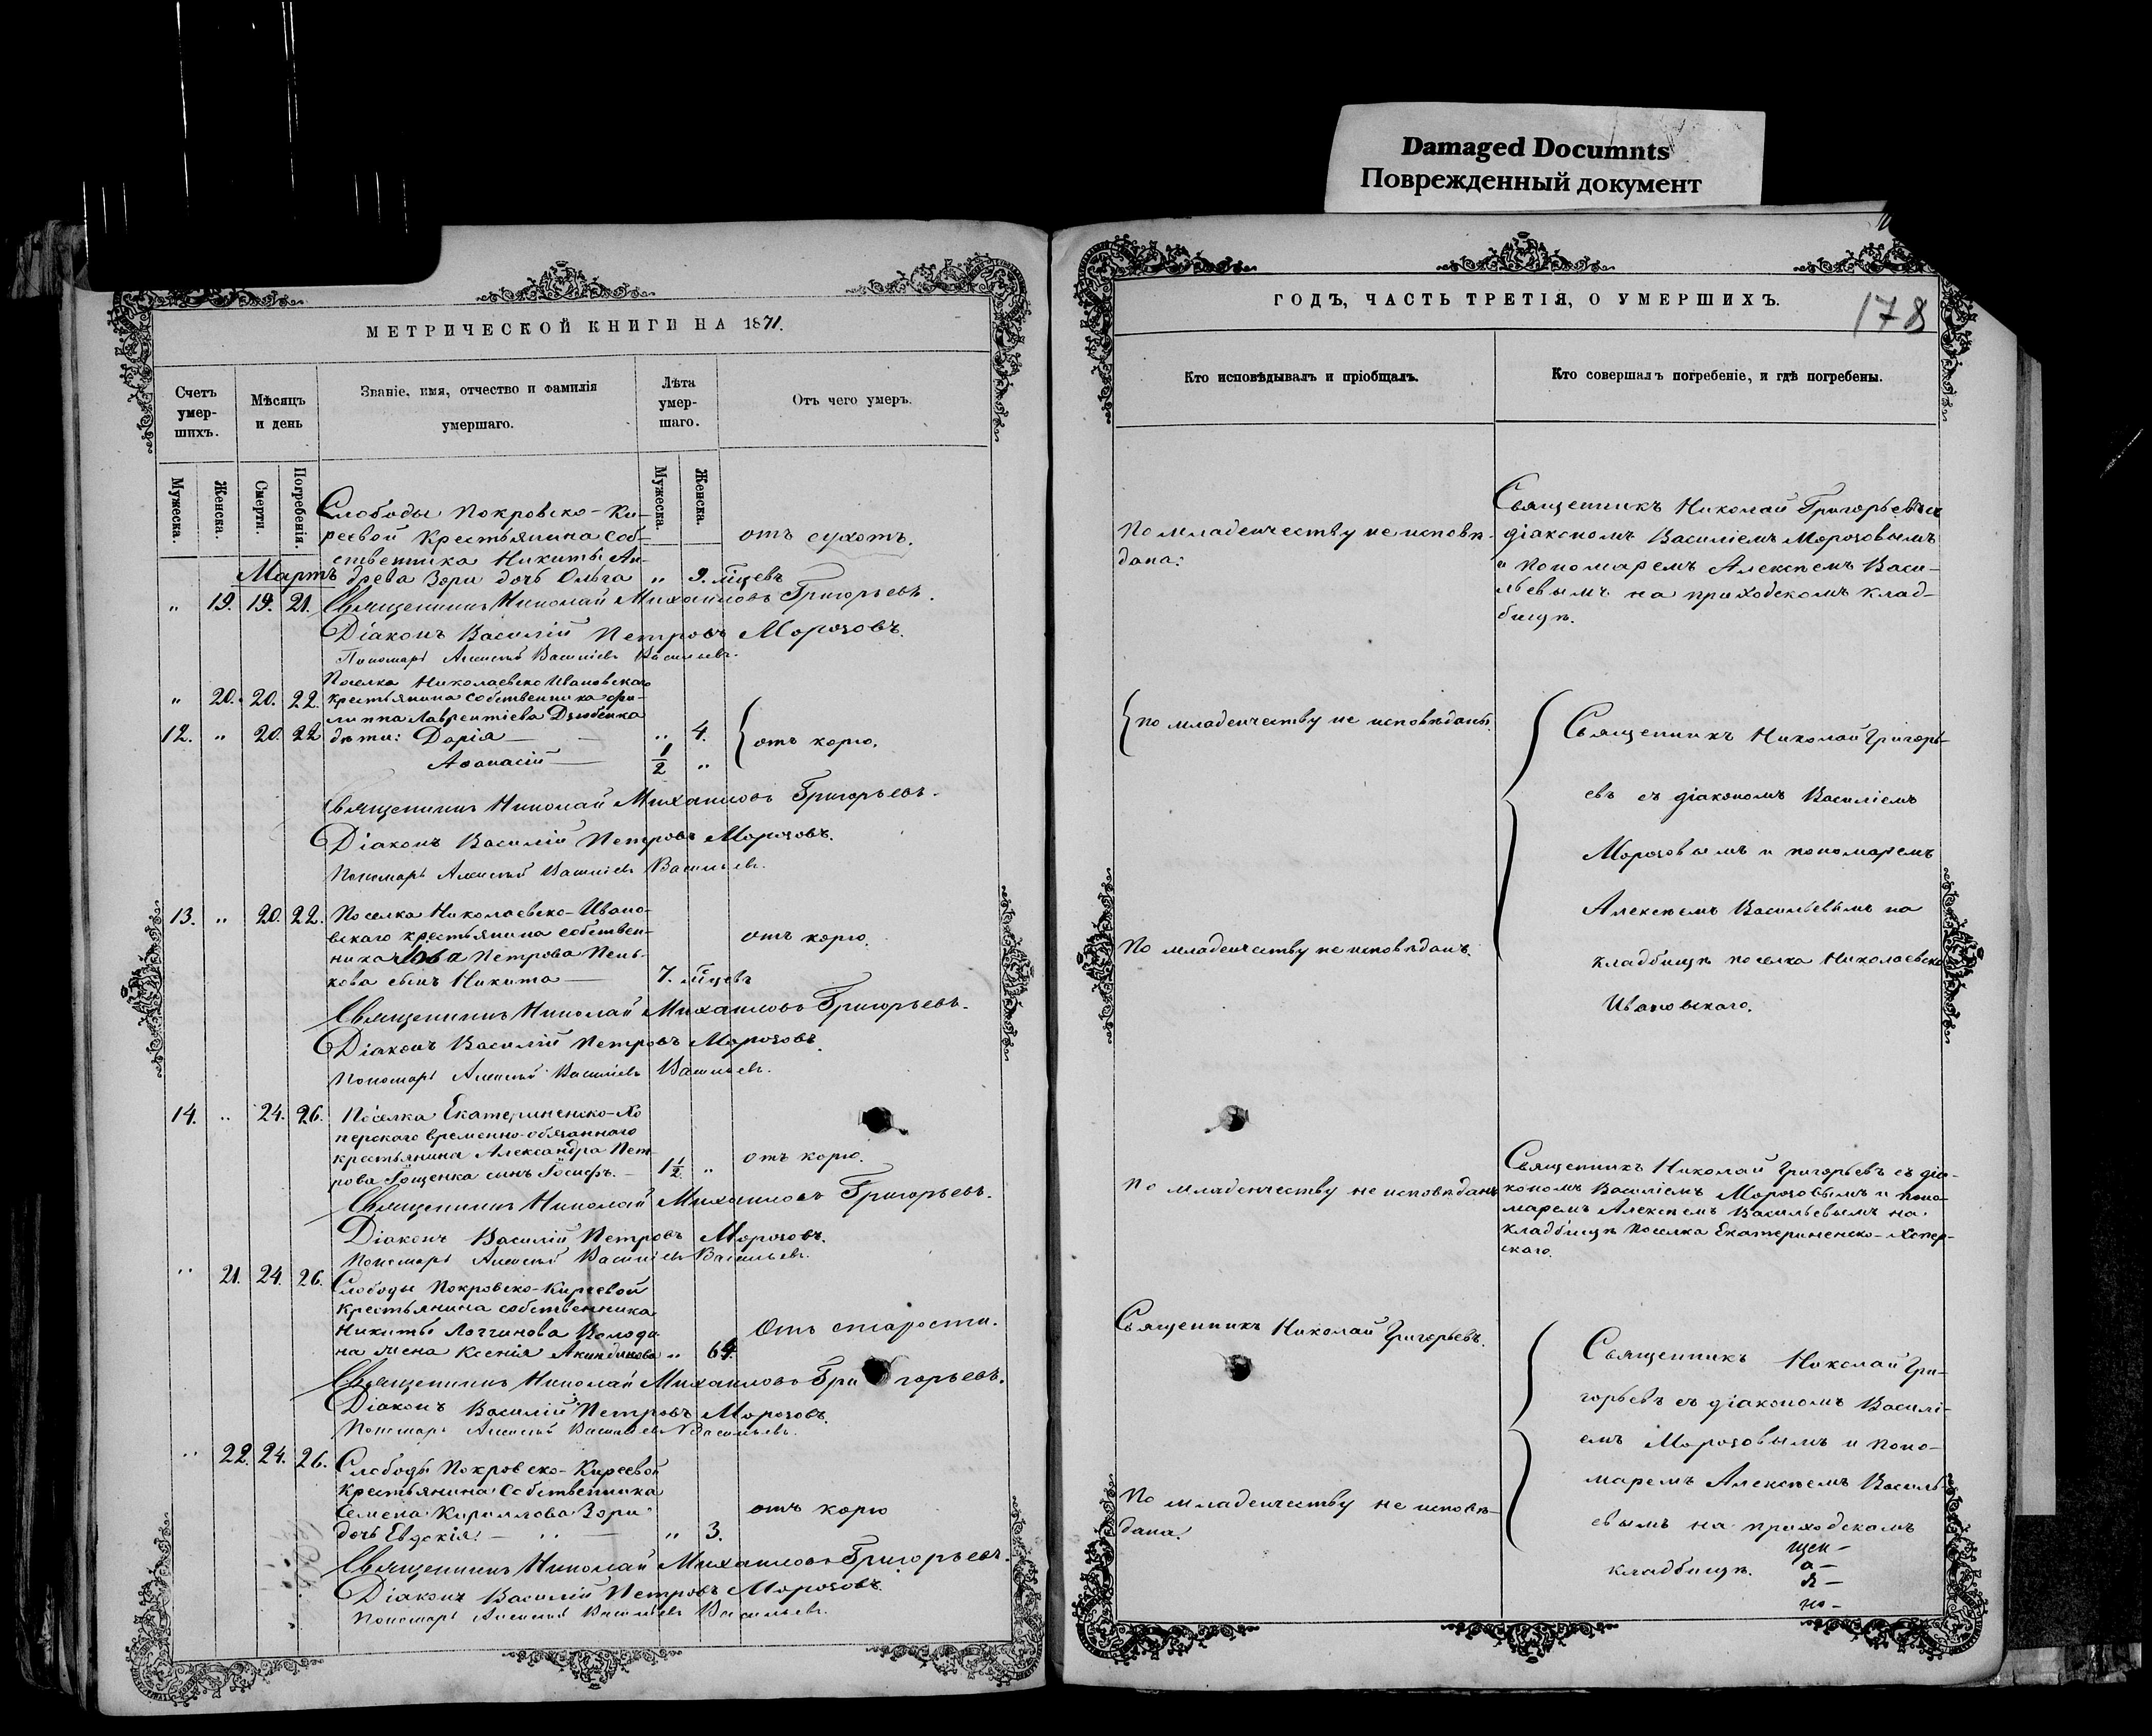 Damaged Documnts
Поврежденный документ
МЕТРИЧЕСКОЙ КНИГИ НА 1871.
Счетъ умер-шихъ.
Мѣсяцъ и день
Званіе, имя, отчество и фамилія умершаго.
Лѣта умер-шаго.
Отъ чего умеръ.
Мужеска.
Женска.
Смерти.
Погребенія.
Мужеска.
Женска.
Слободы Покровско-Ки-
реевой крестьянина соб-
ственника Никиты Ан-
Мартъ древа Зори дочь Ольга " 9. мцевъ
отъ сухотъ.
" 19. 19. 21. Священникъ Николай Михайловъ Григорьевъ.
Діаконъ Василій Петровъ Морозовъ.
Пономарь Алексѣй Василіевъ Васильевъ.
Поселка Николаевско Ивановскаго
" 20. 20. 22. крестьянина собственника Фи-
липпа Лаврентіева Дзюбенка
12. " 20. 22. дѣти: Дарія — " 4.
Аѳанасій — 1/2 "
отъ корю.
Священникъ Николай Михайловъ Григорьевъ.
Діаконъ Василій Петровъ Морозовъ.
Пономарь Алексѣй Василіевъ Васильевъ.
13. " 20. 22. Поселка Николаевско-Ивано-
вскаго крестьянина собствен-
ника Іова Петрова Пень-
кова сынъ Никита — 7. мцевъ
отъ корю.
Священникъ Николай Михайловъ Григорьевъ.
Діаконъ Василій Петровъ Морозовъ.
Пономарь Алексѣй Василіевъ Васильевъ.
14. " 24. 26. Поселка Екатериненско-Хо
перскаго временно-обязаннаго
крестьянина Александра Пет-
рова Гощенка сынъ Іосифъ. — 1 1/2 "
отъ корю.
Священникъ Николай Михайловъ Григорьевъ.
Діаконъ Василій Петровъ Морозовъ.
Пономарь Алексѣй Василіевъ Васильевъ.
" 21. 24. 26. Слободы Покровско-Киреевой
крестьянина собственника
Никиты Логгинова Колода-
на жена Ксенія Акиндинова " 69.
Отъ старости.
Священникъ Николай Михайловъ Григорьевъ.
Діаконъ Василій Петровъ Морозовъ.
Пономарь Алексѣй Василіевъ Васильевъ.
" 22. 24. 26. Слободы Покровско-Киреевой
крестьянина Собственника
Семена Кириллова Зори
дочь Евдокія. — " 3.
отъ корю
Священникъ Николай Михайловъ Григорьевъ.
Діаконъ Василій Петровъ Морозовъ.
Пономарь Алексѣй Василіевъ Васильевъ.
ГОДЪ, ЧАСТЬ ТРЕТІЯ, О УМЕРШИХЪ.
178
Кто исповѣдывалъ и пріобщалъ.
Кто совершалъ погребеніе, и гдѣ погребены.
По младенчеству не исповѣ-
дана.
Священникъ Николай Григорьевъ съ
діакономъ Василіемъ Морозовымъ
и пономаремъ Алексѣемъ Васи-
льевымъ на приходскомъ клад-
бищѣ.
по младенчеству не исповѣданы.
Священникъ Николай Григорь-
евъ съ діакономъ Василіемъ
Морозовымъ и пономаремъ
Алексѣемъ Васильевымъ на
кладбищѣ поселка Николаевско
Ивановскаго.
По младенчеству не исповѣданъ.
По младенчеству не исповѣданъ
Священникъ Николай Григорьевъ съ діа-
кономъ Василіемъ Морозовымъ и поно-
маремъ Алексѣемъ Васильевымъ на
кладбищѣ Поселка Екатериненско-Хопер-
скаго.
Священникъ Николай Григорьевъ.
Священникъ Николай Гри-
горьевъ съ діакономъ Васили-
емъ Морозовымъ и поно-
маремъ Алексѣемъ Василь-
евымъ на приходскомъ
кладбищѣ.
По младенчеству не исповѣ-
дана.
щен-
а-
я-
но-